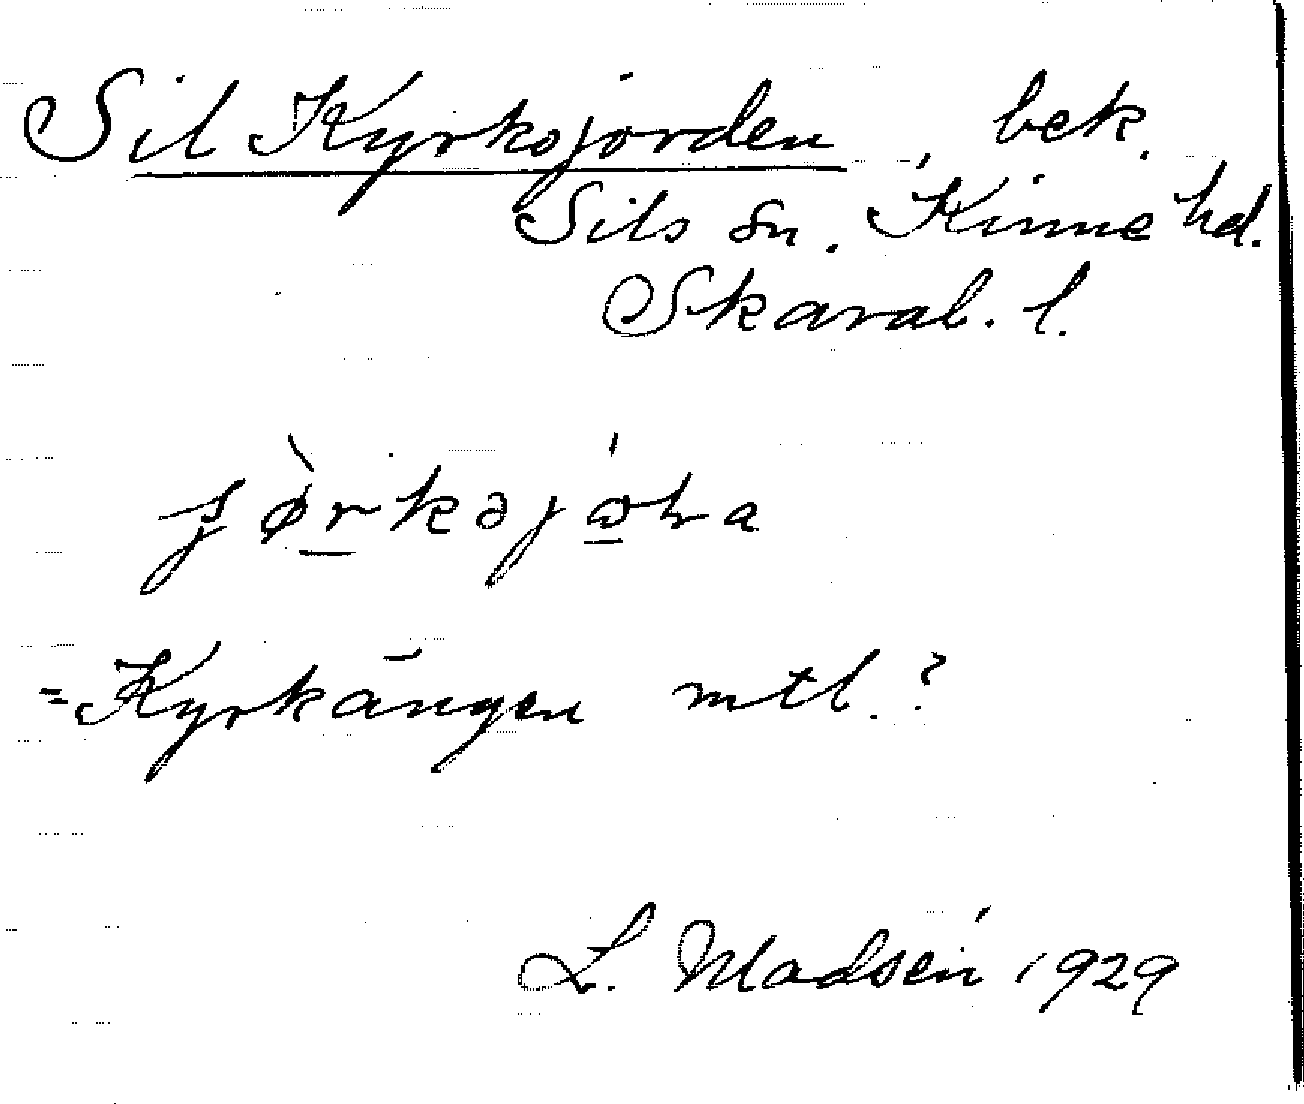 Sil Kyrkojorden, bek.
Sils sn. Kinne hd.
Skarab. l.
= Kyrkängen mtl.?
L. Madsén 1929